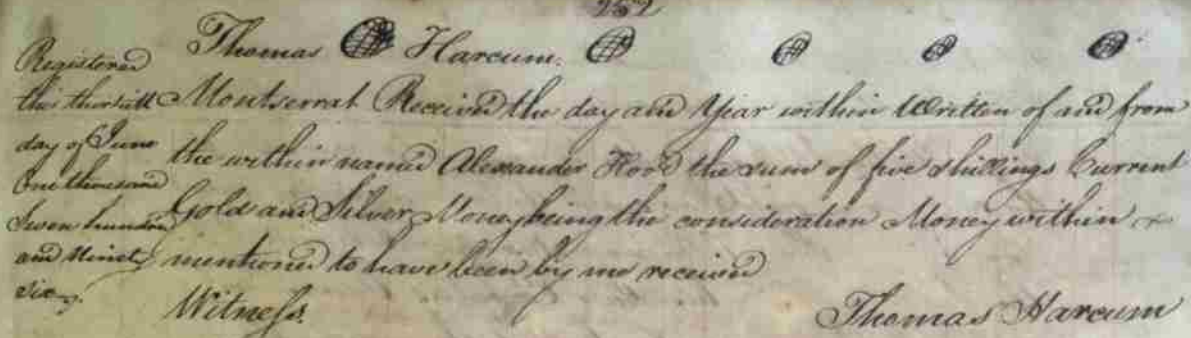 252
Thomas Harcum.
Registered
this thirtieth
day of June
One thousand
Seven hundred
and Ninety
six.
Montserrat Received the day and Year within Written of and from
the within named Alexander Hood the sum of five shillings Current
Gold and Silver Money being the consideration Money within
mentioned to have been by me received
Witness.
Thomas Harcum